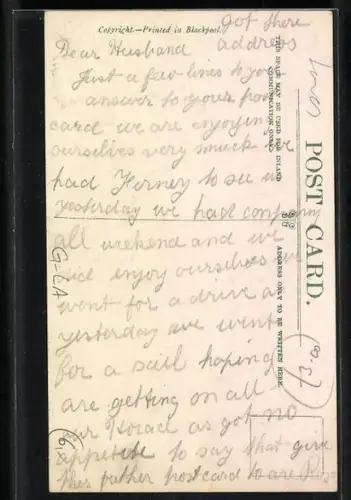 Copyright.—Printed in Blackpool.
got there
address
Dear Husband
Just a few lines to you
answer to your post
card we are enjoying
ourselves very much we
had to see us
yesterday we had company
all weekend and we
did enjoy ourselves we
went for a drive
yesterday we went
for a sail hoping
are getting on all
our Horace as got no
appetite to say that give
this father postcard to are
POST CARD.
THIS SPACE MAY BE USED FOR INLAND
COMMUNICATION ONLY.
ADDRESS ONLY TO BE WRITTEN HERE.
G-LA